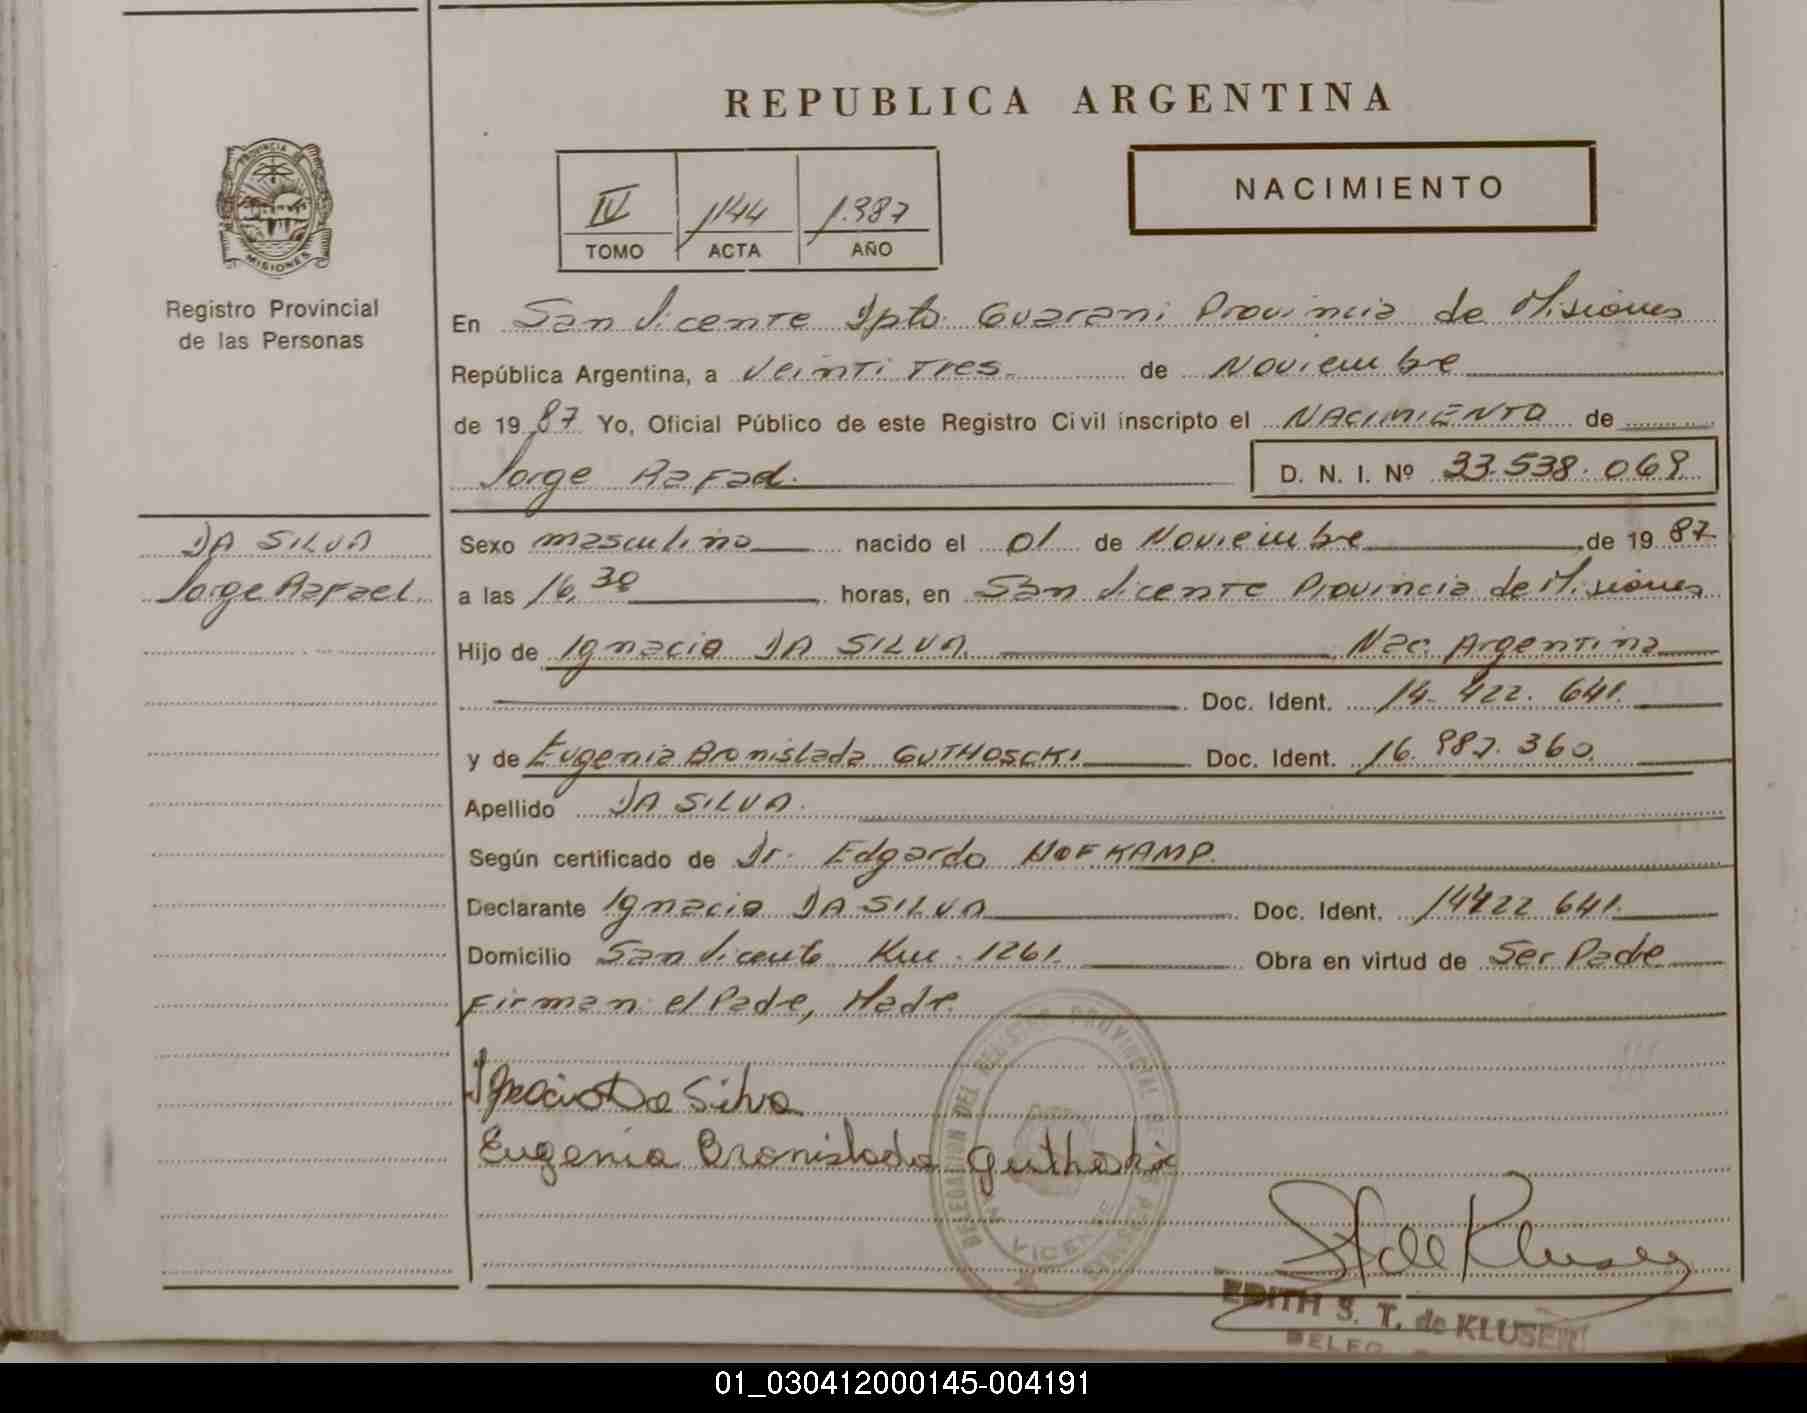 REPUBLICA ARGENTINA
PROVINCIA DE
MISIONES
Registro Provincial
de las Personas
IV 1144 1.987
TOMO ACTA AÑO
NACIMIENTO
En San Vicente Dpto Guarani Provincia de Misiones
República Argentina, a Veinti Tres. de Noviembre
de 1987 Yo, Oficial Público de este Registro Civil inscripto el NACIMIENTO de
Jorge Rafael. D. N. I. Nº 33.538.069
DA SILVA
Jorge Rafael.
Sexo masculino nacido el 01 de Noviembre de 1987.
a las 16,30 horas, en San Vicente Provincia de Misiones
Hijo de Ignacio DA SILVA. Nac. Argentina
Doc. Ident. 14.422.641.
y de Eugenia Bronislada GUTHOSCKI Doc. Ident. 16.987.360.
Apellido DA SILVA.
Según certificado de Dr. Edgardo HOFKAMP.
Declarante Ignacio DA SILVA Doc. Ident. 14422641.
Domicilio San Vicente Km. 1261. Obra en virtud de Ser Padre
Firman: el Padre, Madre.
Ignacio Da Silva
Eugenia Bronislada Guthoski
DELEGACION DEL REGISTRO PROVINCIAL DE LAS PERSONAS
SAN VICENTE
EDITH S. T. de KLUSENER
01_030412000145-004191